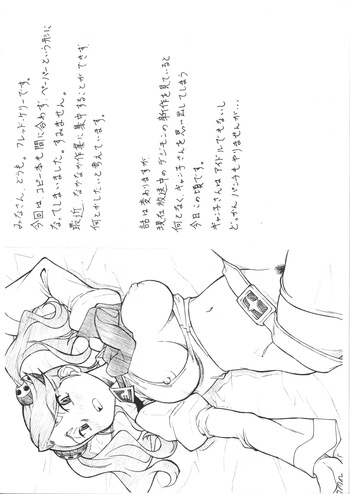 みなさん、どうも。フレッド・ケリーです。
今回は、コピー本も間に合わず、ペーパーという形に
なってしまいました。すみません。
最近、なかなか作業に集中することができず、
何とかしたいと考えています。
話は変わりますが
現在放送中のデジモンの新作を見ていると
何となく、ギャン子さんを思い出してしまう
今日この頃です。
ギャン子さんはアイドルでもないし
どっかんパンチもやりませんが…